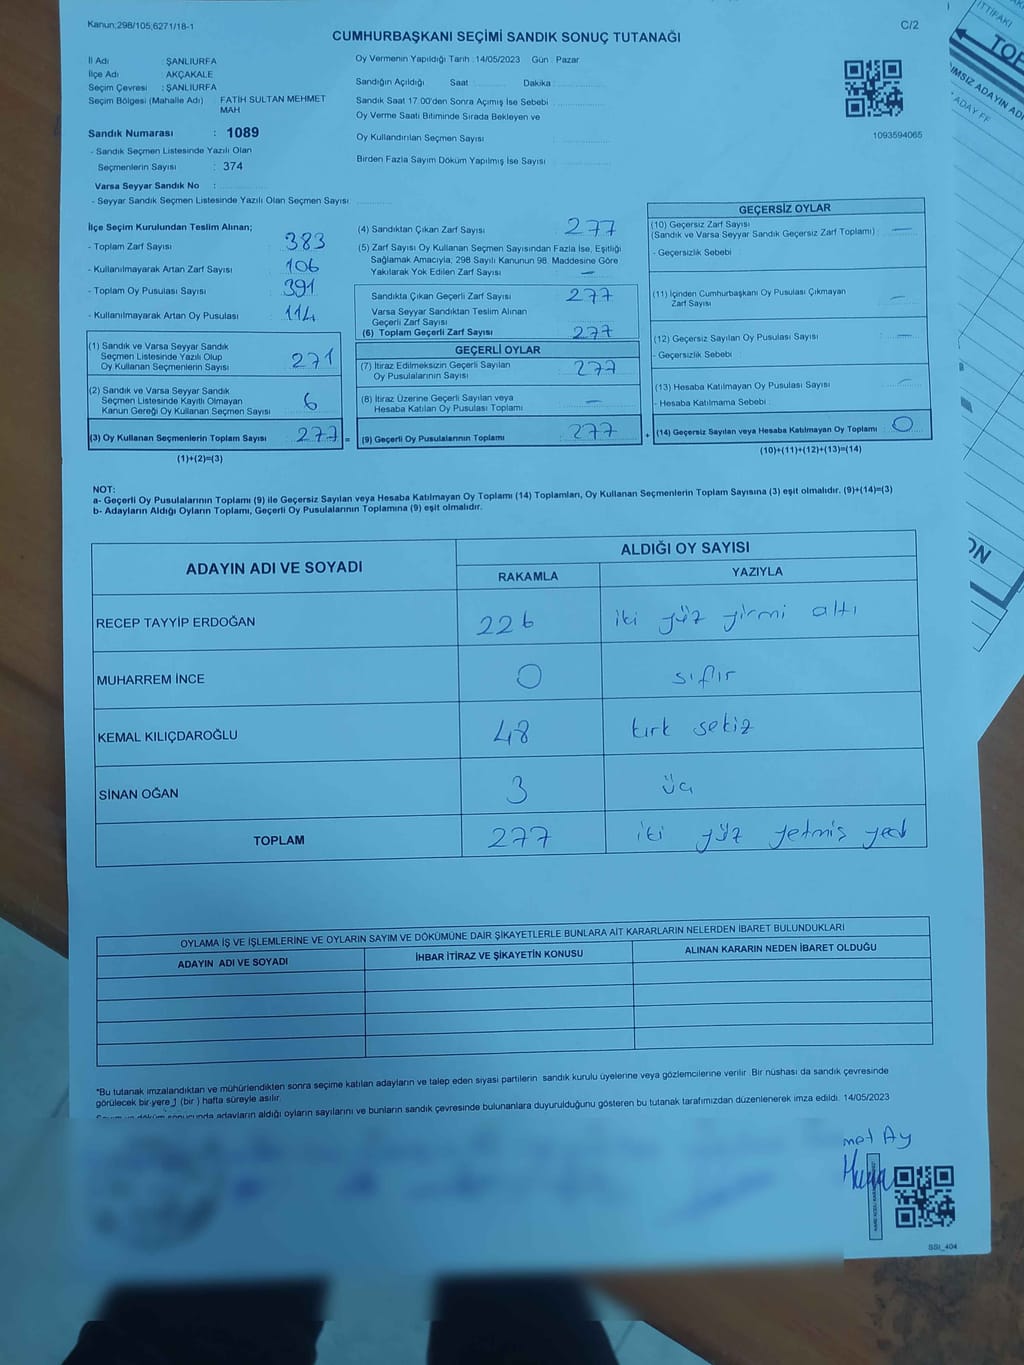 Kanun;298/105,6271/18-1
C/2
CUMHURBAŞKANI SEÇİMİ SANDIK SONUÇ TUTANAĞI
İl Adı : ŞANLIURFA
İlçe Adı : AKÇAKALE
Seçim Çevresi : ŞANLIURFA
Seçim Bölgesi (Mahalle Adı) FATİH SULTAN MEHMET
MAH
Sandık Numarası : 1089
- Sandık Seçmen Listesinde Yazılı Olan
Seçmenlerin Sayısı : 374
Varsa Seyyar Sandık No :
- Seyyar Sandık Seçmen Listesinde Yazılı Olan Seçmen Sayısı:
Oy Vermenin Yapıldığı Tarih : 14/05/2023 Gün : Pazar
Sandığın Açıldığı Saat Dakika :
Sandık Saat 17.00'den Sonra Açımış İse Sebebi
Oy Verme Saati Bitiminde Sırada Bekleyen ve
Oy Kullandırılan Seçmen Sayısı :
Birden Fazla Sayım Döküm Yapılmış İse Sayısı :
1093594065
İlçe Seçim Kurulundan Teslim Alınan;
- Toplam Zarf Sayısı 383
- Kullanılmayarak Artan Zarf Sayısı 106
- Toplam Oy Pusulası Sayısı 391
- Kullanılmayarak Artan Oy Pusulası 114
(1) Sandık ve Varsa Seyyar Sandık
Seçmen Listesinde Yazılı Olup
Oy Kullanan Seçmenlerin Sayısı 271
(2) Sandık ve Varsa Seyyar Sandık
Seçmen Listesinde Kayıtlı Olmayan
Kanun Gereği Oy Kullanan Seçmen Sayısı 6
(3) Oy Kullanan Seçmenlerin Toplam Sayısı 277 =
(1)+(2)=(3)
(4) Sandıktan Çıkan Zarf Sayısı 277
(5) Zarf Sayısı Oy Kullanan Seçmen Sayısından Fazla İse, Eşitliği
Sağlamak Amacıyla; 298 Sayılı Kanunun 98. Maddesine Göre
Yakılarak Yok Edilen Zarf Sayısı : —
Sandıkta Çıkan Geçerli Zarf Sayısı 277
Varsa Seyyar Sandıktan Teslim Alınan
Geçerli Zarf Sayısı
(6) Toplam Geçerli Zarf Sayısı 277
GEÇERLİ OYLAR
(7) İtiraz Edilmeksizin Geçerli Sayılan
Oy Pusulalarının Sayısı 277
(8) İtiraz Üzerine Geçerli Sayılan veya
Hesaba Katılan Oy Pusulası Toplamı —
(9) Geçerli Oy Pusulalarının Toplamı 277 +
GEÇERSİZ OYLAR
(10) Geçersiz Zarf Sayısı
(Sandık ve Varsa Seyyar Sandık Geçersiz Zarf Toplamı) : —
- Geçersizlik Sebebi
(11) İçinden Cumhurbaşkanı Oy Pusulası Çıkmayan
Zarf Sayısı —
(12) Geçersiz Sayılan Oy Pusulası Sayısı —
- Geçersizlik Sebebi
(13) Hesaba Katılmayan Oy Pusulası Sayısı —
- Hesaba Katılmama Sebebi
(14) Geçersiz Sayılan veya Hesaba Katılmayan Oy Toplamı 0
(10)+(11)+(12)+(13)=(14)
NOT:
a- Geçerli Oy Pusulalarının Toplamı (9) ile Geçersiz Sayılan veya Hesaba Katılmayan Oy Toplamı (14) Toplamları, Oy Kullanan Seçmenlerin Toplam Sayısına (3) eşit olmalıdır. (9)+(14)=(3)
b- Adayların Aldığı Oyların Toplamı, Geçerli Oy Pusulalarının Toplamına (9) eşit olmalıdır.
ADAYIN ADI VE SOYADI ALDIĞI OY SAYISI
RAKAMLA YAZIYLA
RECEP TAYYİP ERDOĞAN 226 iki yüz yirmi altı
MUHARREM İNCE 0 sıfır
KEMAL KILIÇDAROĞLU 48 kırk sekiz
SİNAN OĞAN 3 üç
TOPLAM 277 iki yüz yetmiş yedi
OYLAMA İŞ VE İŞLEMLERİNE VE OYLARIN SAYIM VE DÖKÜMÜNE DAİR ŞİKAYETLERLE BUNLARA AİT KARARLARIN NELERDEN İBARET BULUNDUKLARI
ADAYIN ADI VE SOYADI İHBAR İTİRAZ VE ŞİKAYETİN KONUSU ALINAN KARARIN NEDEN İBARET OLDUĞU
*Bu tutanak imzalandıktan ve mühürlendikten sonra seçime katılan adayların ve talep eden siyasi partilerin sandık kurulu üyelerine veya gözlemcilerine verilir. Bir nüshası da sandık çevresinde
görülecek bir yere 1 (bir ) hafta süreyle asılır.
Sayım ve döküm sonucunda adayların aldığı oyların sayılarını ve bunların sandık çevresinde bulunanlara duyurulduğunu gösteren bu tutanak tarafımızdan düzenlenerek imza edildi. 14/05/2023
met Ay
SSI_404
İTTİFAKI
TOP
ADAY
ON